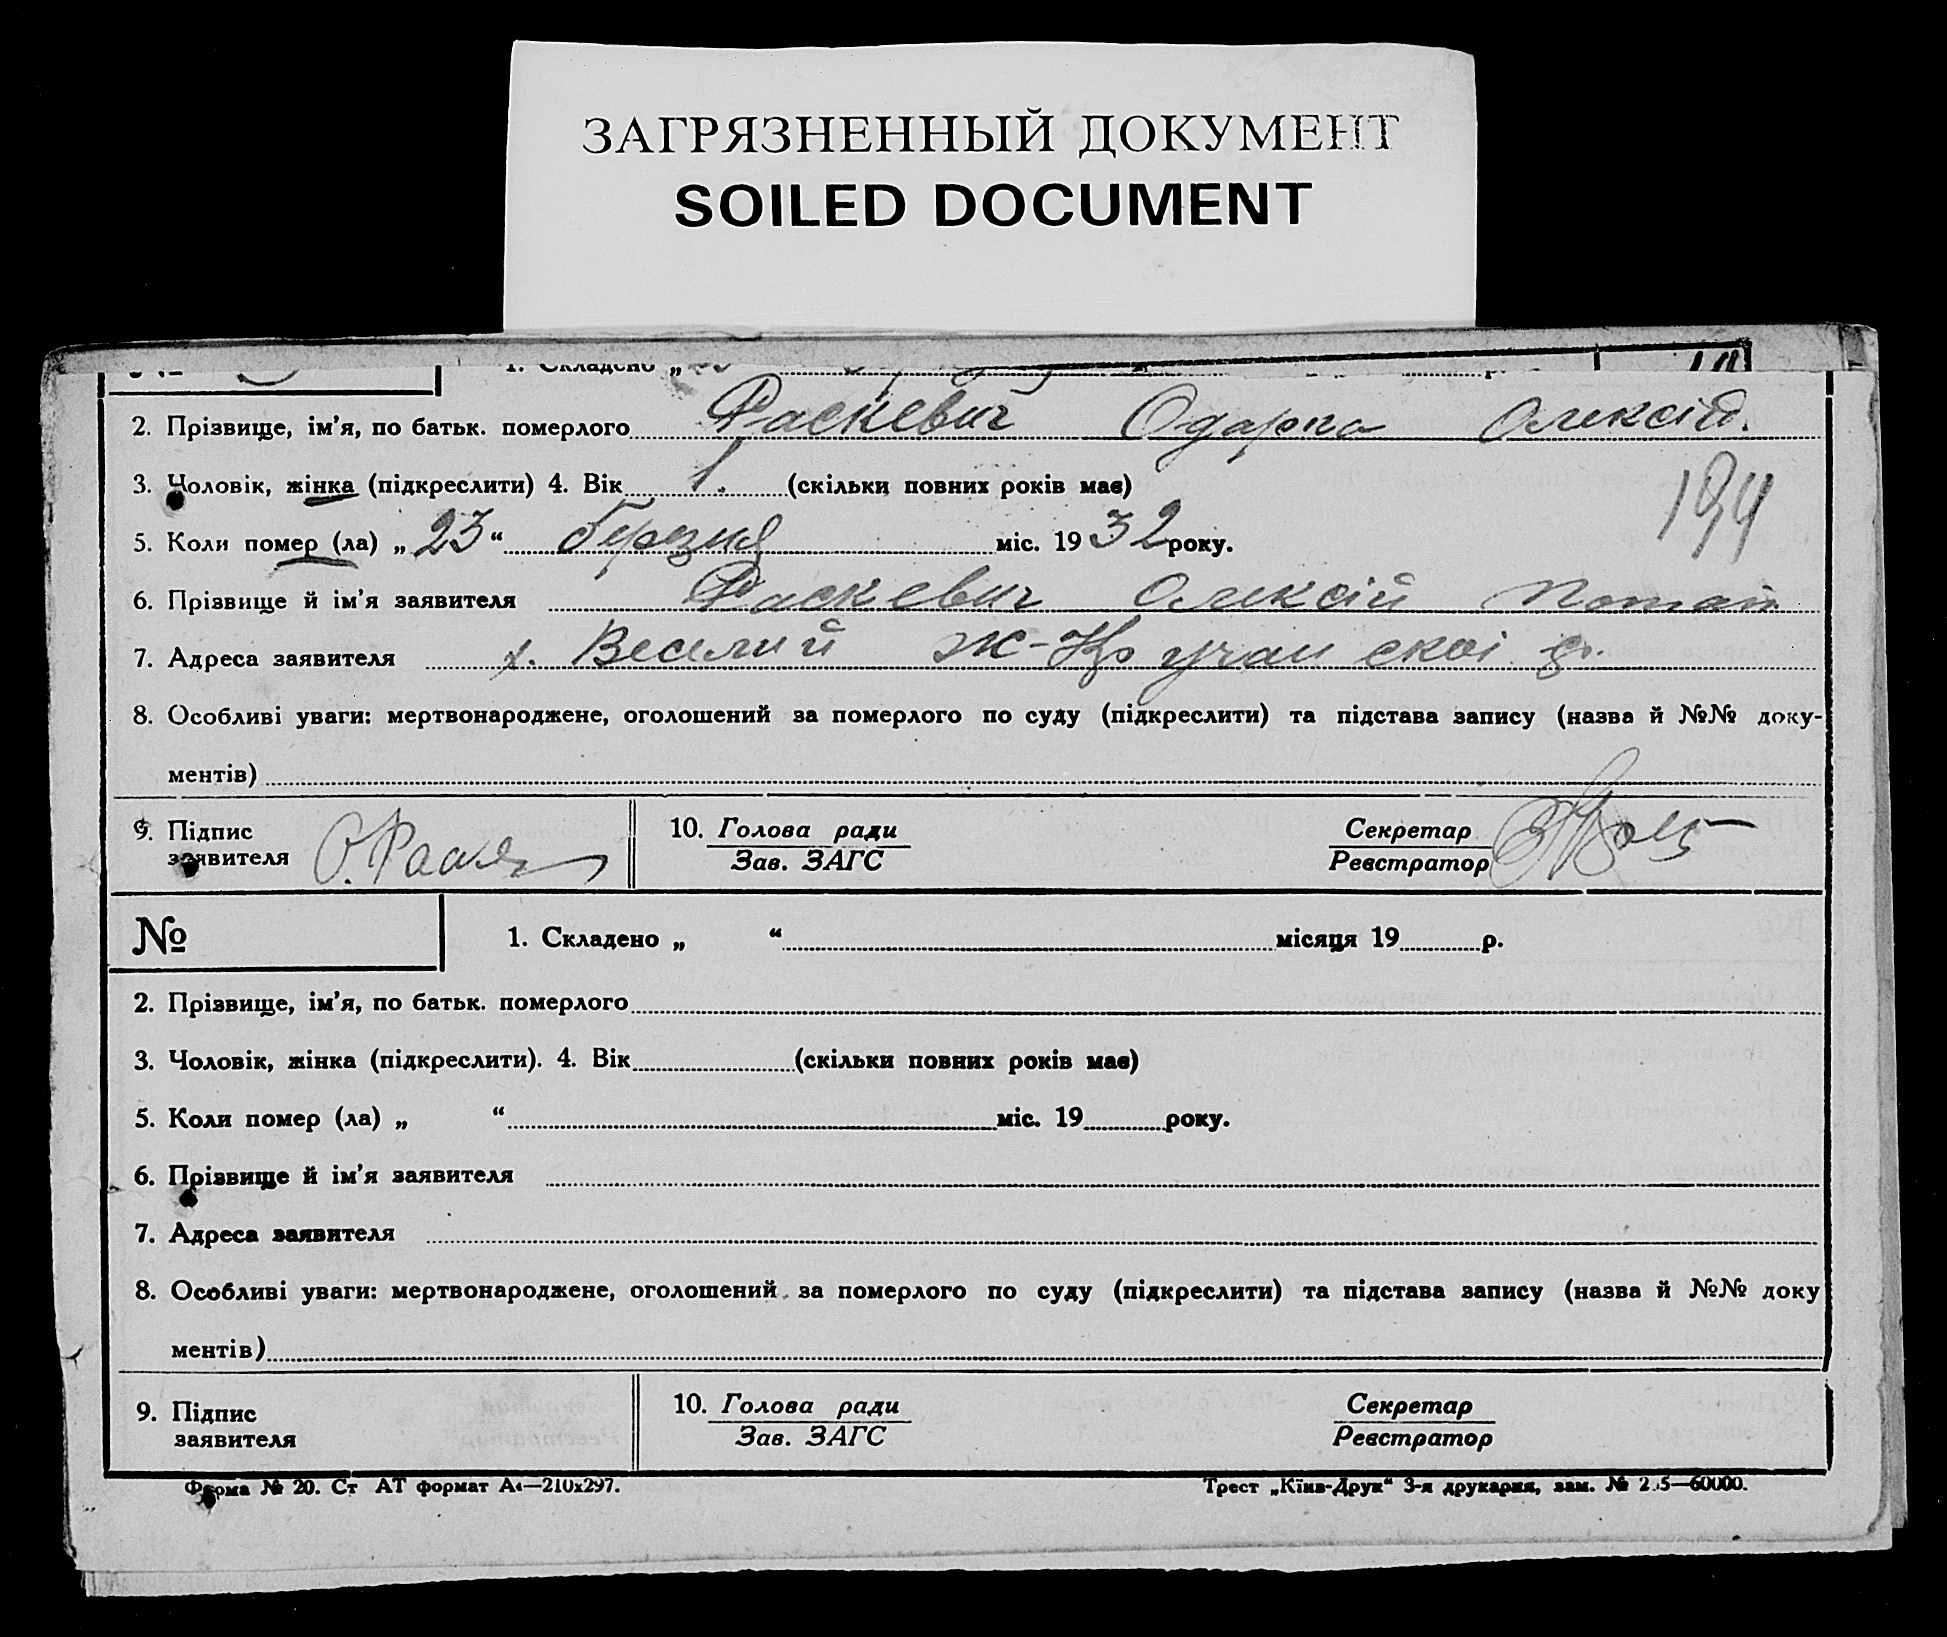 ЗАГРЯЗНЕННЫЙ ДОКУМЕНТ
SOILED DOCUMENT
1. Складено „
2. Прізвище, ім’я, по батьк. померлого Раскевич Одарка Олексід.
3. Чоловік, жінка (підкреслити) 4. Вік 1. (скільки повних років має)
194
5. Коли помер (ла) „23“ березня міс. 1932 року.
6. Прізвище й ім’я заявителя Раскевич Олексій
7. Адреса заявителя х. Веселий
8. Особливі уваги: мертвонароджене, оголошений за померлого по суду (підкреслити) та підстава запису (назва й №№ доку-
ментів)
9. Підпис заявителя
10. Голова ради
Зав. ЗАГС
Секретар
Реєстратор
№
1. Складено „ “ місяця 19 р.
2. Прізвище, ім’я, по батьк. померлого
3. Чоловік, жінка (підкреслити). 4. Вік (скільки повних років має)
5. Коли помер (ла) „ “ міс. 19 року.
6. Прізвище й ім’я заявителя
7. Адреса заявителя
8. Особливі уваги: мертвонароджене, оголошений за померлого по суду (підкреслити) та підстава запису (назва й №№ доку
ментів)
9. Підпис
заявителя
10. Голова ради
Зав. ЗАГС
Секретар
Реєстратор
Форма № 20. Ст АТ формат А4—210х297.
Трест „Київ-Друк“ 3-я друкарня, зам. № 60000.